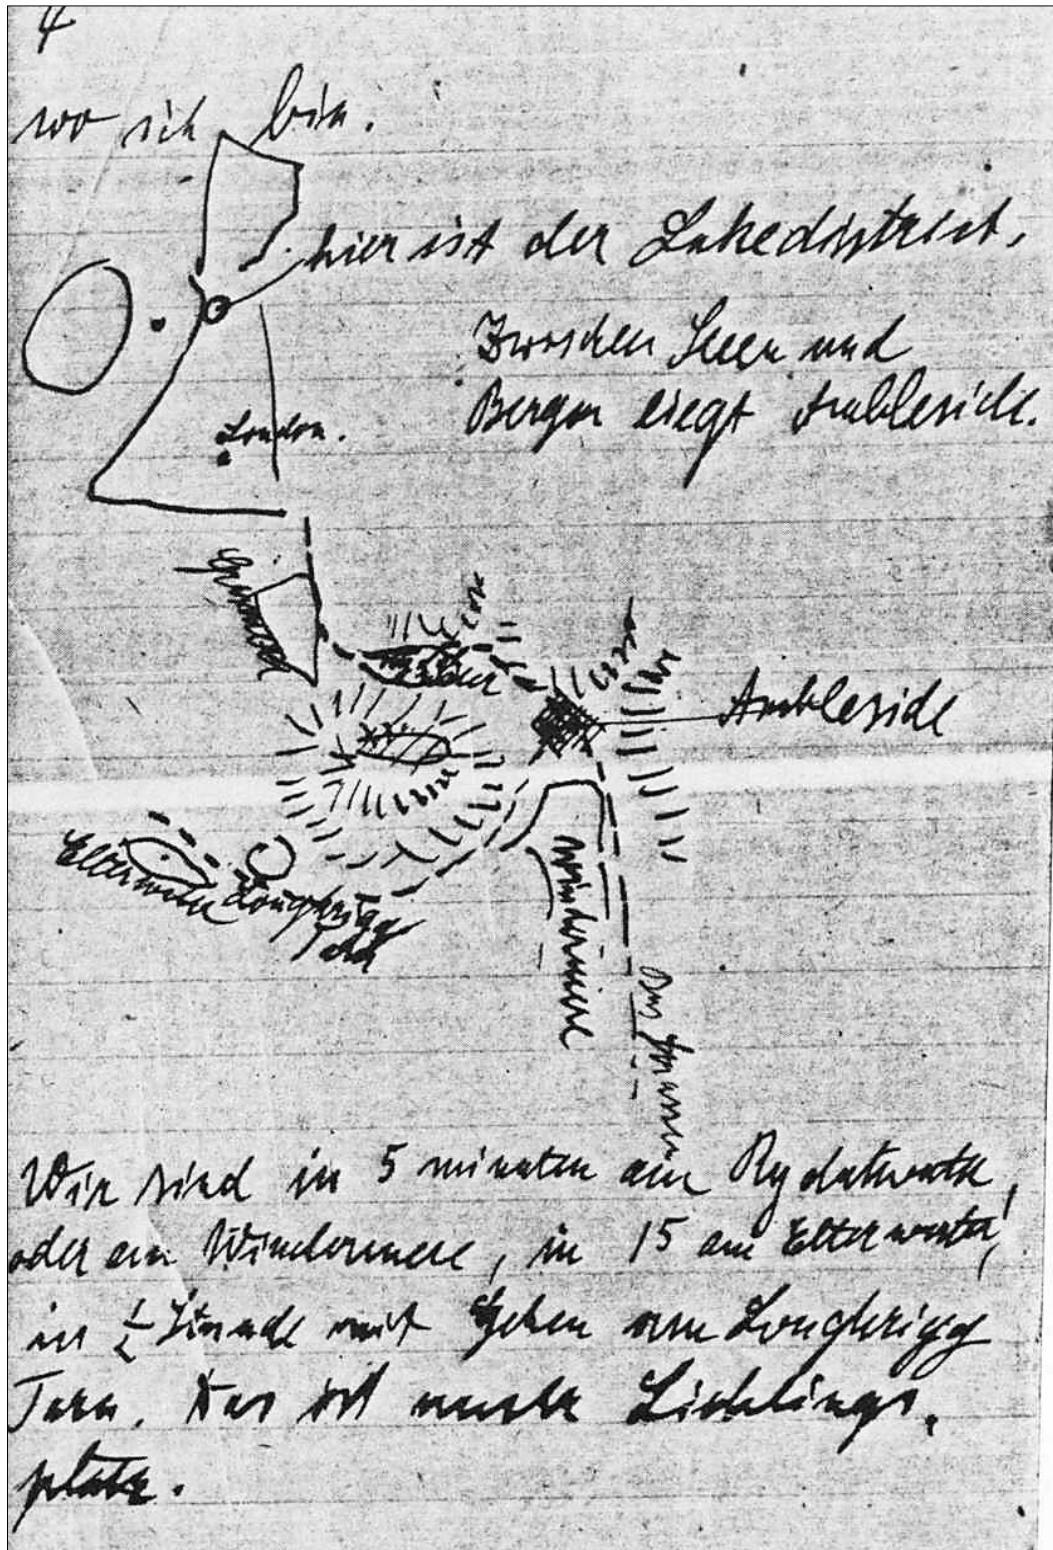 4
wo ich bin.
hier ist der Lakedistrict.
Zwischen Seen und
Bergen liegt Ambleside.
London.
Ambleside
Elterwater
Loughrigg
Tarn
Windermere
Wir sind in 5 minuten am Rydalwater,
oder am Windermere, in 15 am Elterwater,
in ½ Stunde mit Gehen am Loughrigg
Tarn. Das ist unser Lieblings-
platz.